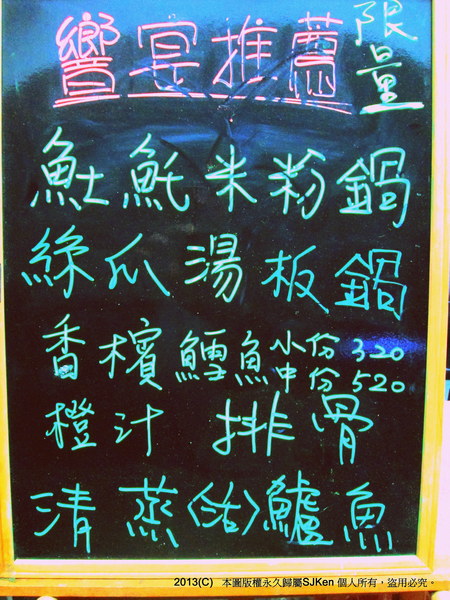 饗宴推薦
限量
魠魠米粉鍋
絲瓜湯板鍋
香檳鱈魚小份 320
中份 520
橙汁排骨
清蒸〈活〉鱸魚
2013(C) 本圖版權永久歸屬SJKen 個人所有，盜用必究。